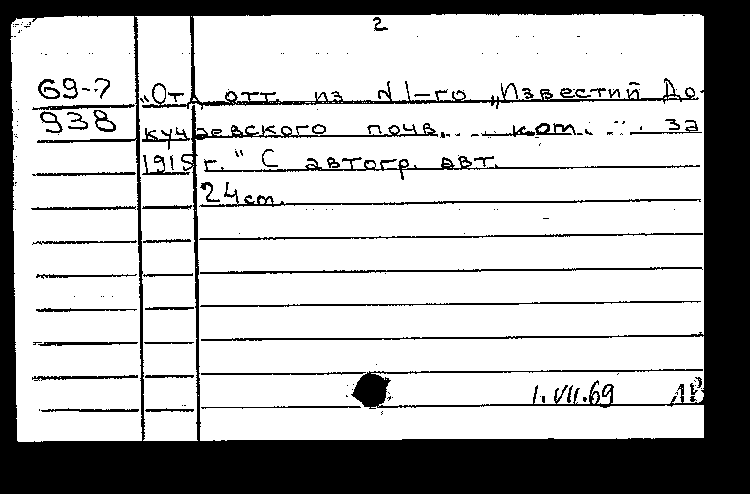 2
69-7 „Отд. отт. из N 1-го „Известий До-
938 кучаевского почв. ком." за
1915 г." С автогр. авт.
24 cm.
1.VII.69 ЛВ